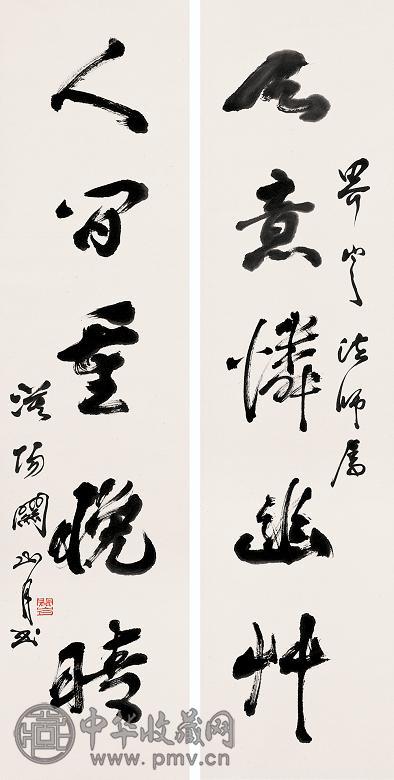 法師屬
天意憐幽草
人間重晚晴
漠陽關山月書
中华收藏网
www.pmv.cn